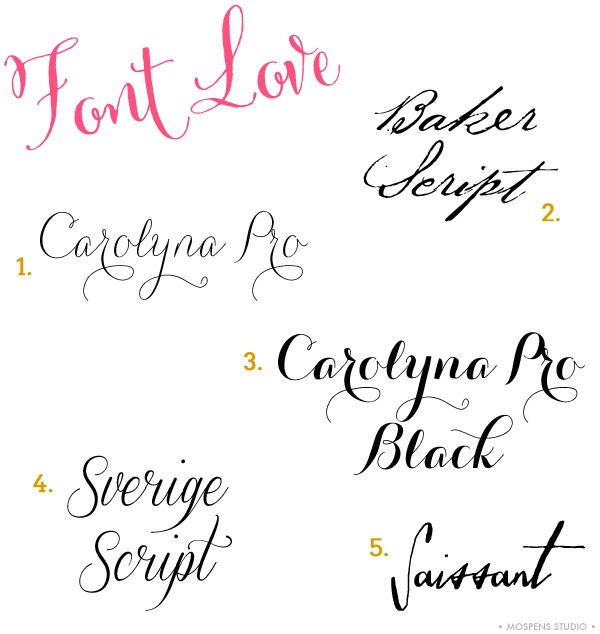 Font Love
1. Carolyna Pro
Baker
Script 2.
3. Carolyna Pro
Black
4. Sverige
Script
5. Saissant
• MOSPENS STUDIO •